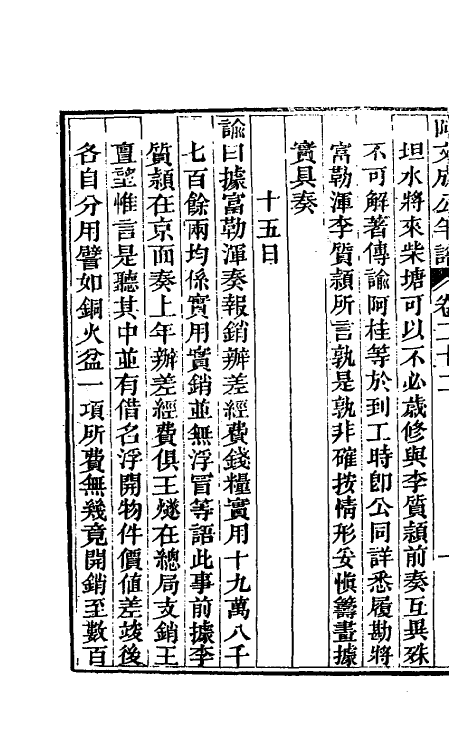 阿文成公年譜 卷二十二
坦水將來柴塘可以不必歲修與李質潁前奏互異殊
不可解著傳諭阿桂等於到工時卽公同詳悉履勘將
富勒渾李質潁所言孰是孰非確按情形妥愼籌畫據
實具奏
十五日
諭曰據富勒渾奏報銷辦差經費錢糧實用十九萬八千
七百餘兩均係實用實銷並無浮冒等語此事前據李
質潁在京面奏上年辦差經費俱王燧在總局支銷王
亶望惟言是聽其中並有借名浮開物件價值差竣後
各自分用譬如銅火盆一項所費無幾竟開銷至數百